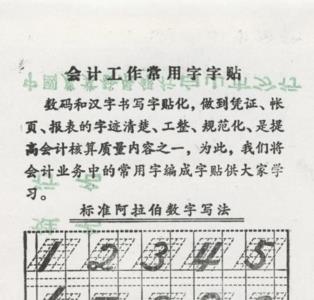 会计工作常用字字贴
数码和汉字书写字贴化，做到凭证、帐
页、报表的字迹清楚、工整、规范化、是提
高会计核算质量内容之一，为此，我们将
会计业务中的常用字编成字贴供大家学
习。
标准阿拉伯数字写法
1 2 3 4 5